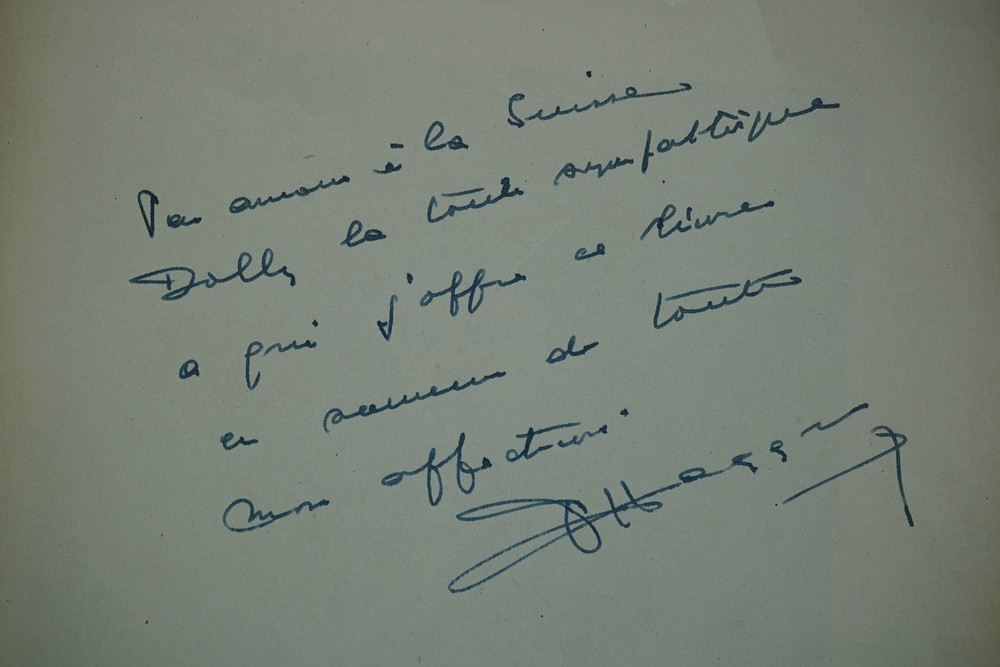 Par amour à la Suisse
Dolly la toute sympathique
a qui j'offre ce livre
en souvenir de toute
mon affection